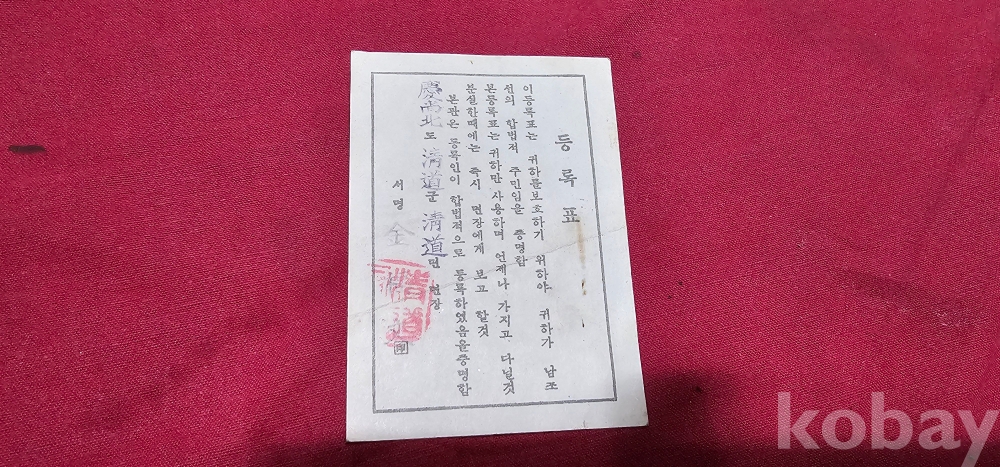 등록표
이등록표는 귀하를보호하기 위하야 귀하가 남조
선의 합법적 주민임을 증명함
본등록표는 귀하만 사용하며 언제나 가지고 다닐것
분실한때에는 즉시 면장에게 보고 할것
본관은 등록인이 합법적으로 등록하였음을증명함
慶尙北도 淸道군 淸道면 면장
서명 金
淸道
印
kobay